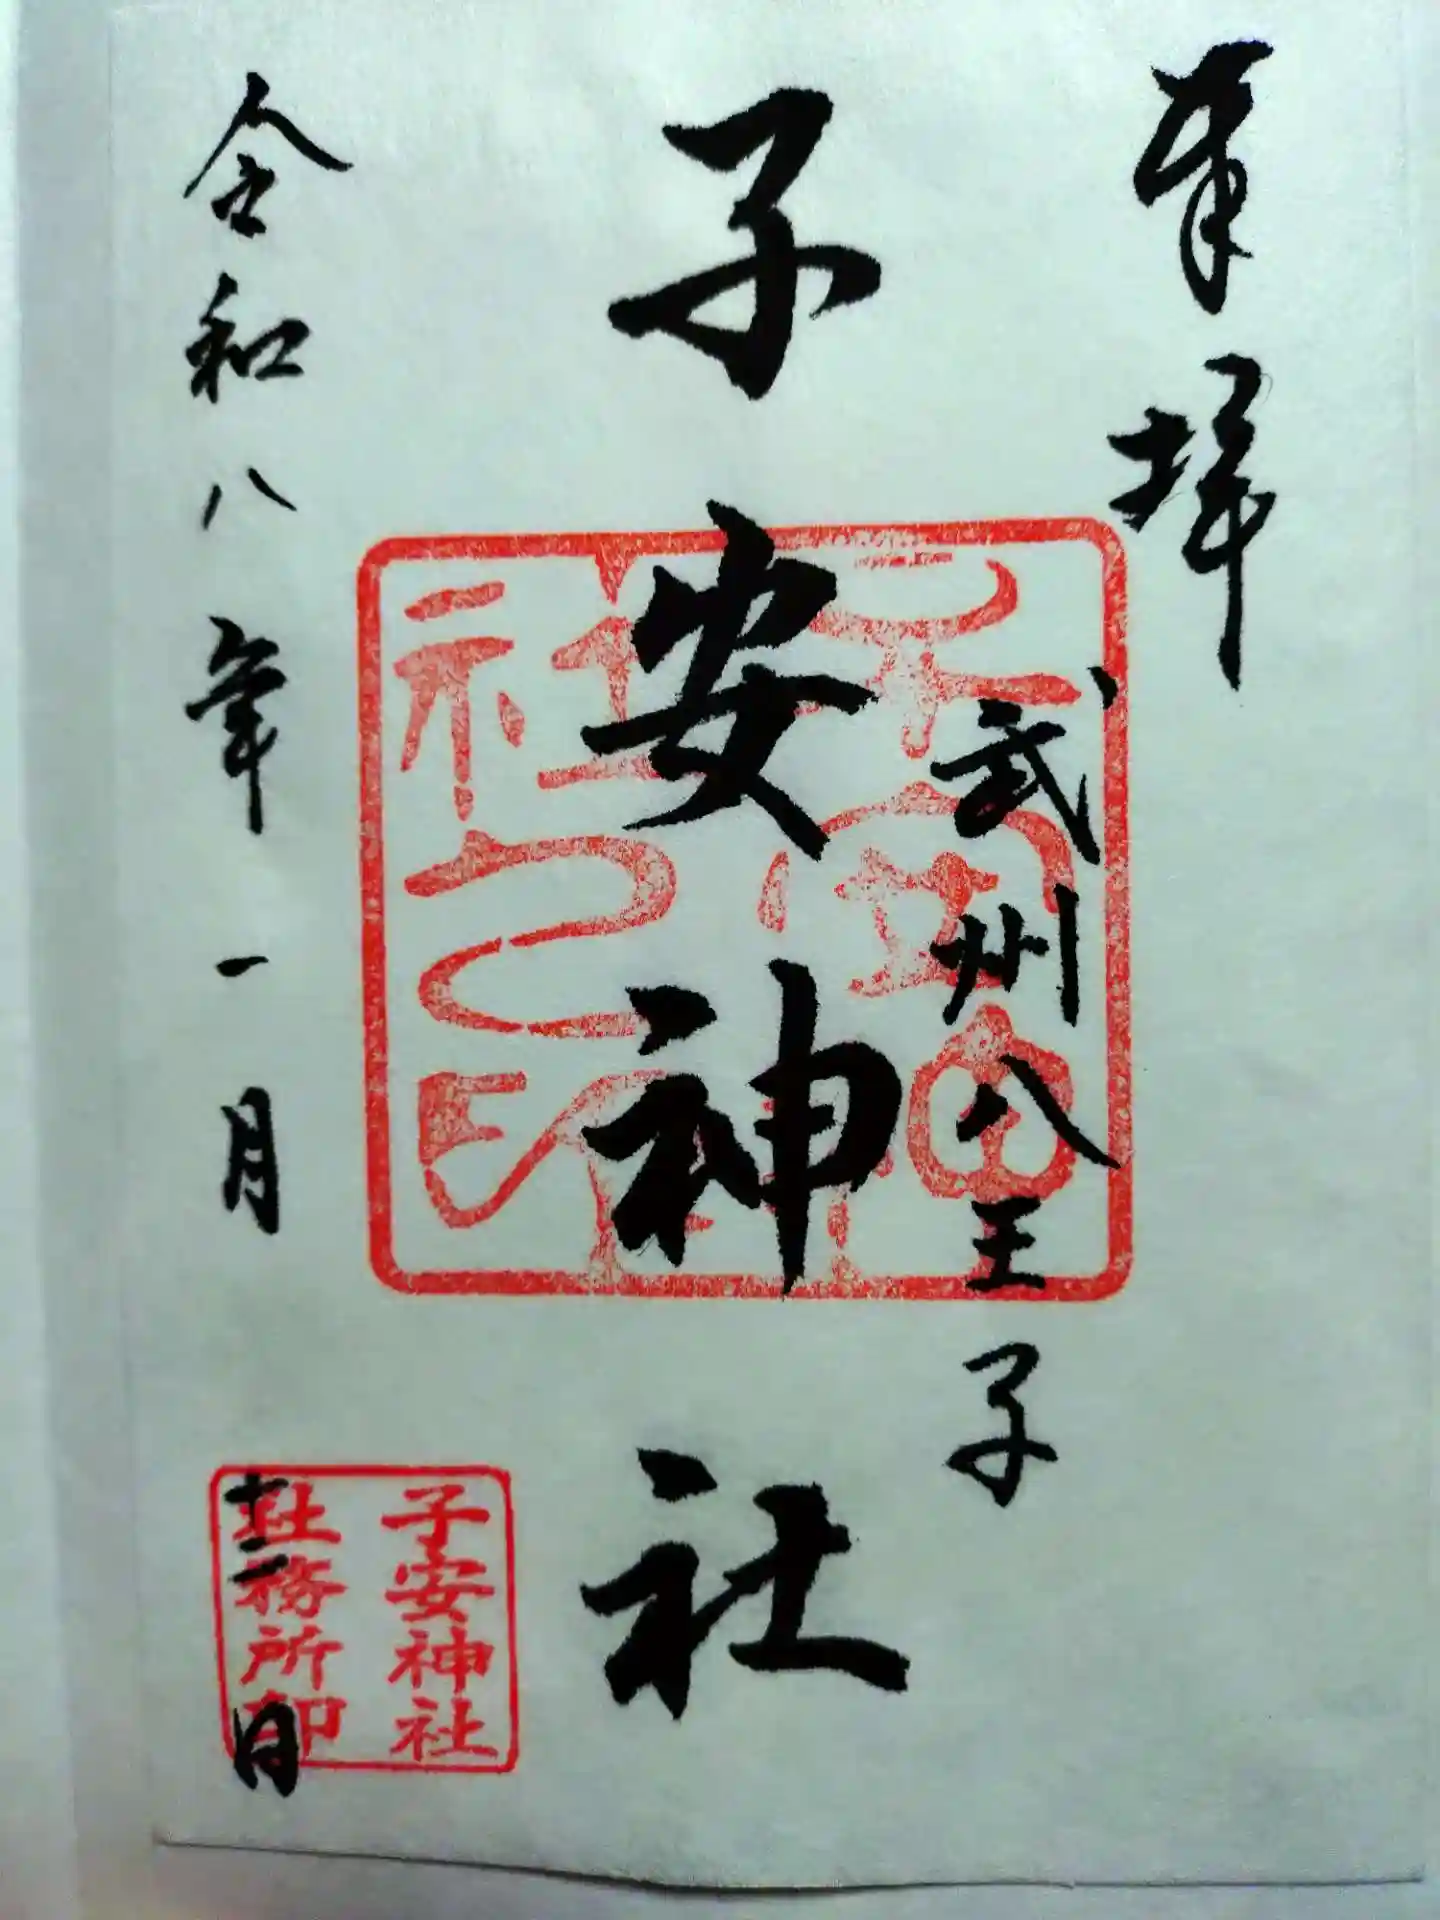 奉拝
武州八王子
子安神社
子安神社之印
令和八年一月十二日
子安神社
社務所印